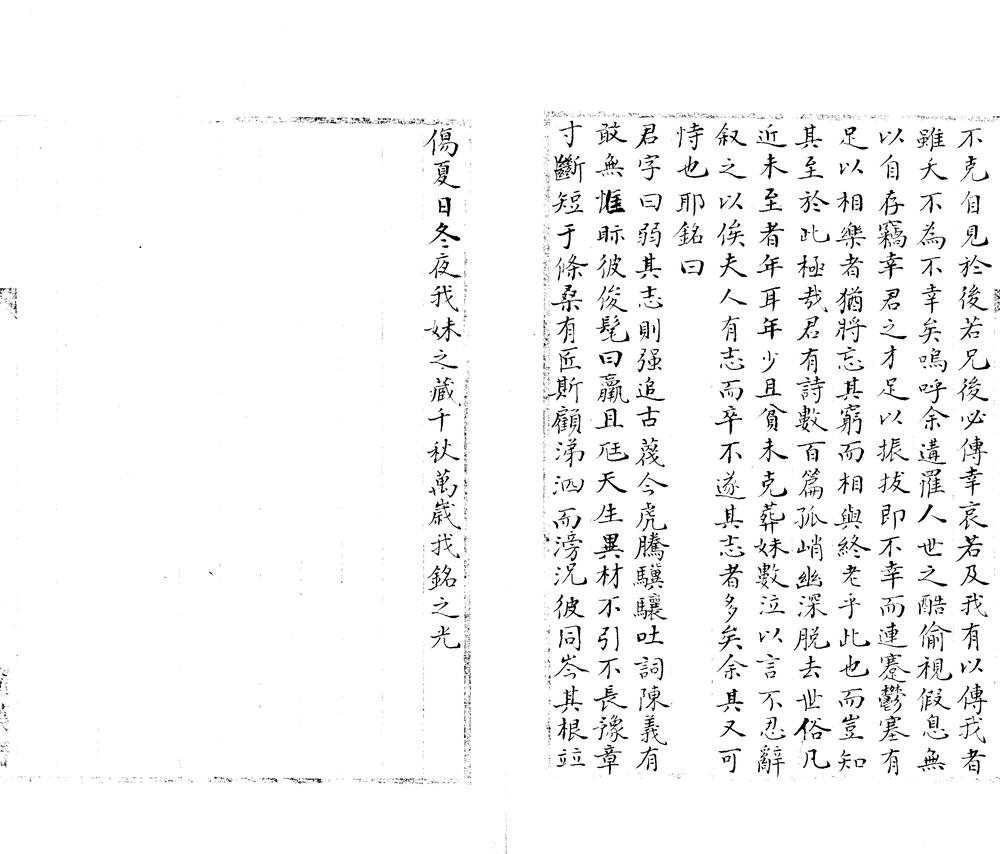 不克自見於後若兄後必傳幸哀若及我有以傳我者
雖夭不為不幸矣嗚呼余遘罹人世之酷偷視假息無
以自存竊幸君之才足以振拔即不幸而連蹇鬱塞有
足以相樂者猶將忘其窮而相與終老乎此也而豈知
其至於此極哉君有詩數百篇孤峭幽深脱去世俗凡
近未至者年耳年少且貧未克葬妹數泣以言不忍辭
叙之以俟夫人有志而卒不遂其志者多矣余其又可
恃也耶銘曰
君字曰弱其志則强追古蔑今虎騰驥驤吐詞陳義有
敢無惟眎彼俊髦曰羸且尫天生異材不引不長豫章
寸斷短于條桑有匠斯顧涕泗而滂況彼同岑其根竝
傷夏日冬夜我妹之藏千秋萬歲我銘之光